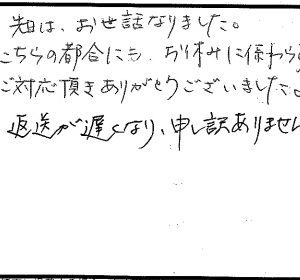 先日は、お世話なりました。
こちらの都合にも、お休みに係わら
ご対応頂きありがとうございました。
返送が遅くなり、申し訳ありませ